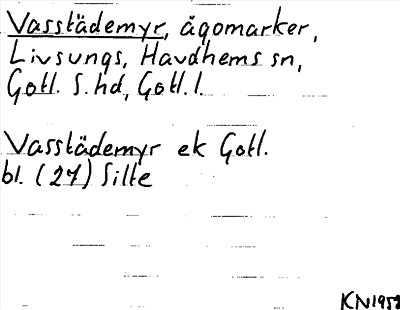 Vasstädemyr, ägomarker,
Livsungs, Havdhems sn,
Gotl. S. hd, Gotl. l.
Vasstädemyr ek Gotl.
bl. (27) Silte